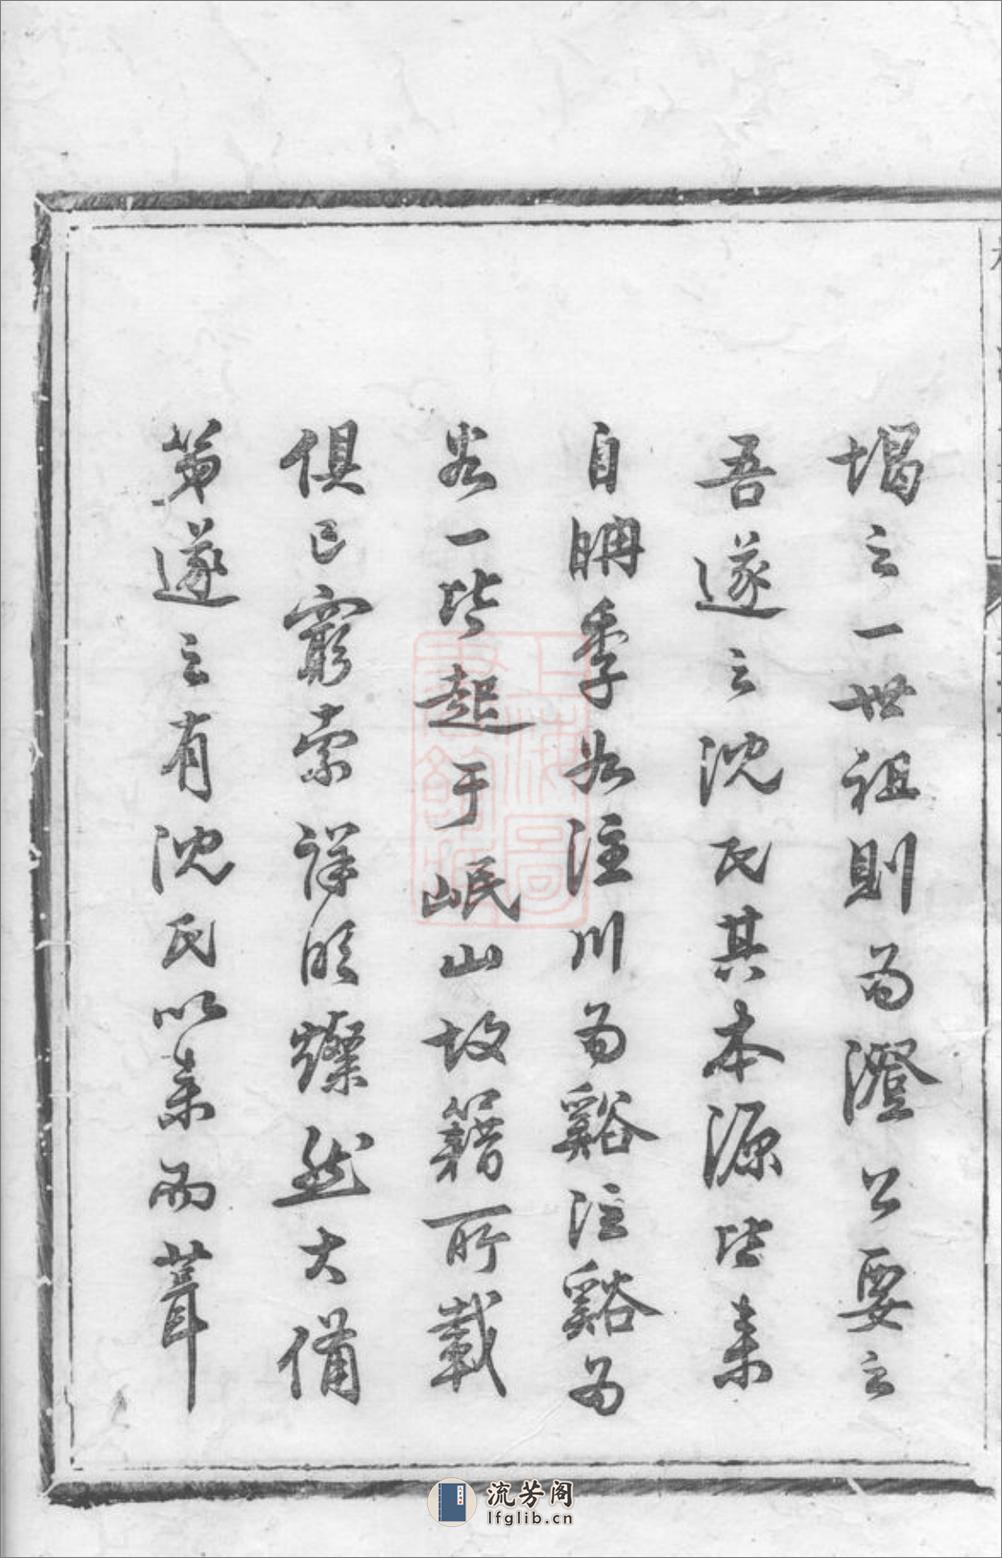 堨之一世祖則為澄公要之
吾遂之沈氏其本源皆來
自聃季如注川為谿注谿為
谷一皆起于岷山故籍所載
俱已窮索詳明燦然大備
第遂之有沈氏以來而葺
上海圖書館藏
流芳阁
lfglib.cn